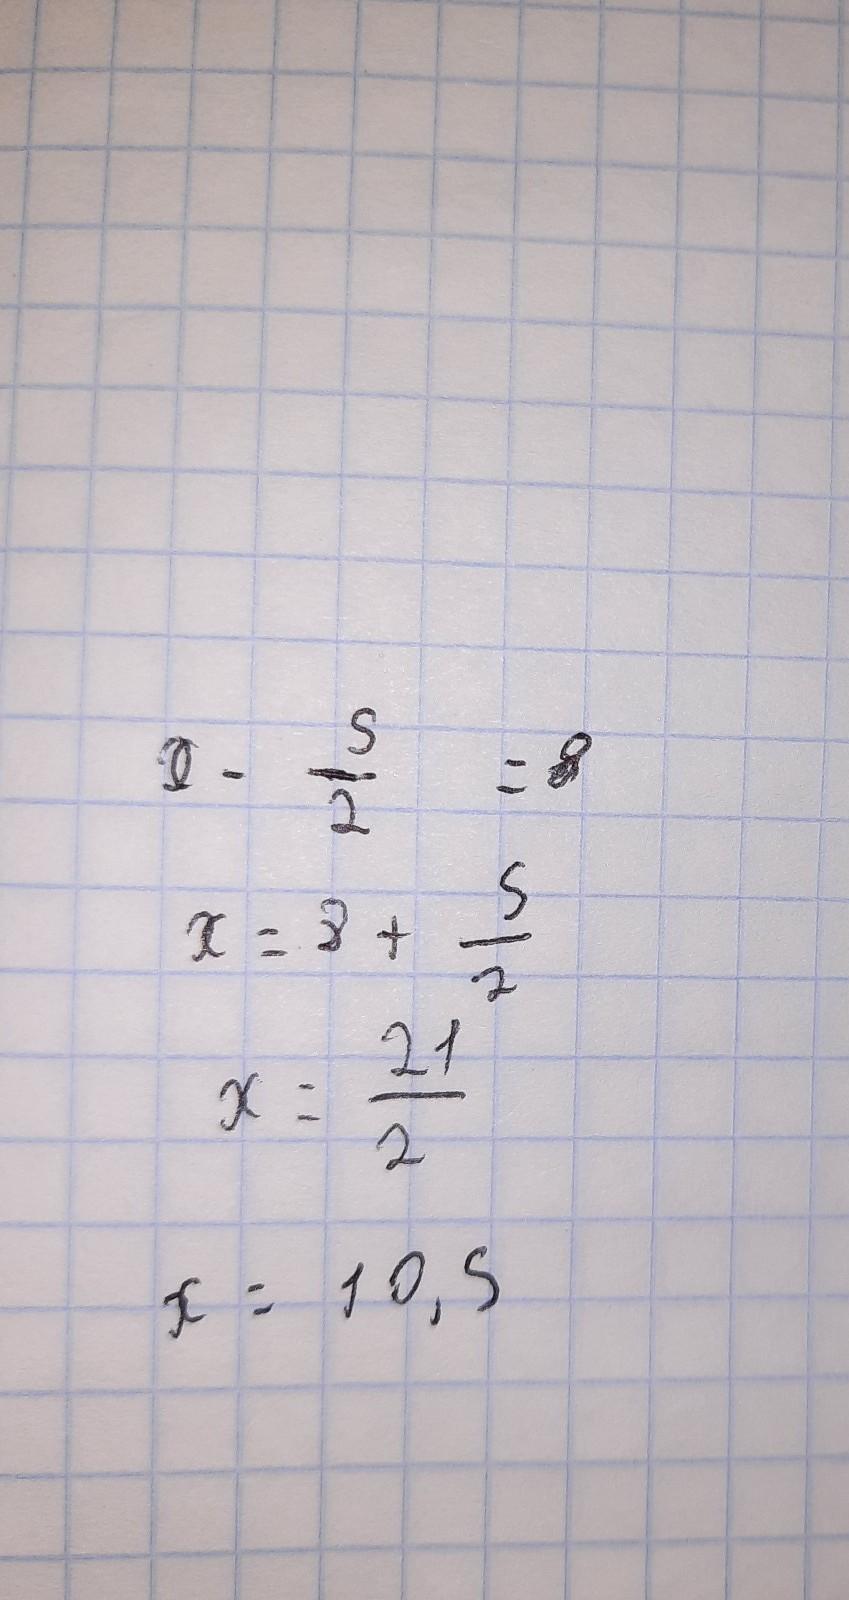 x - 5/2 = 8
x = 8 + 5/2
x = 21/2
x = 10,5